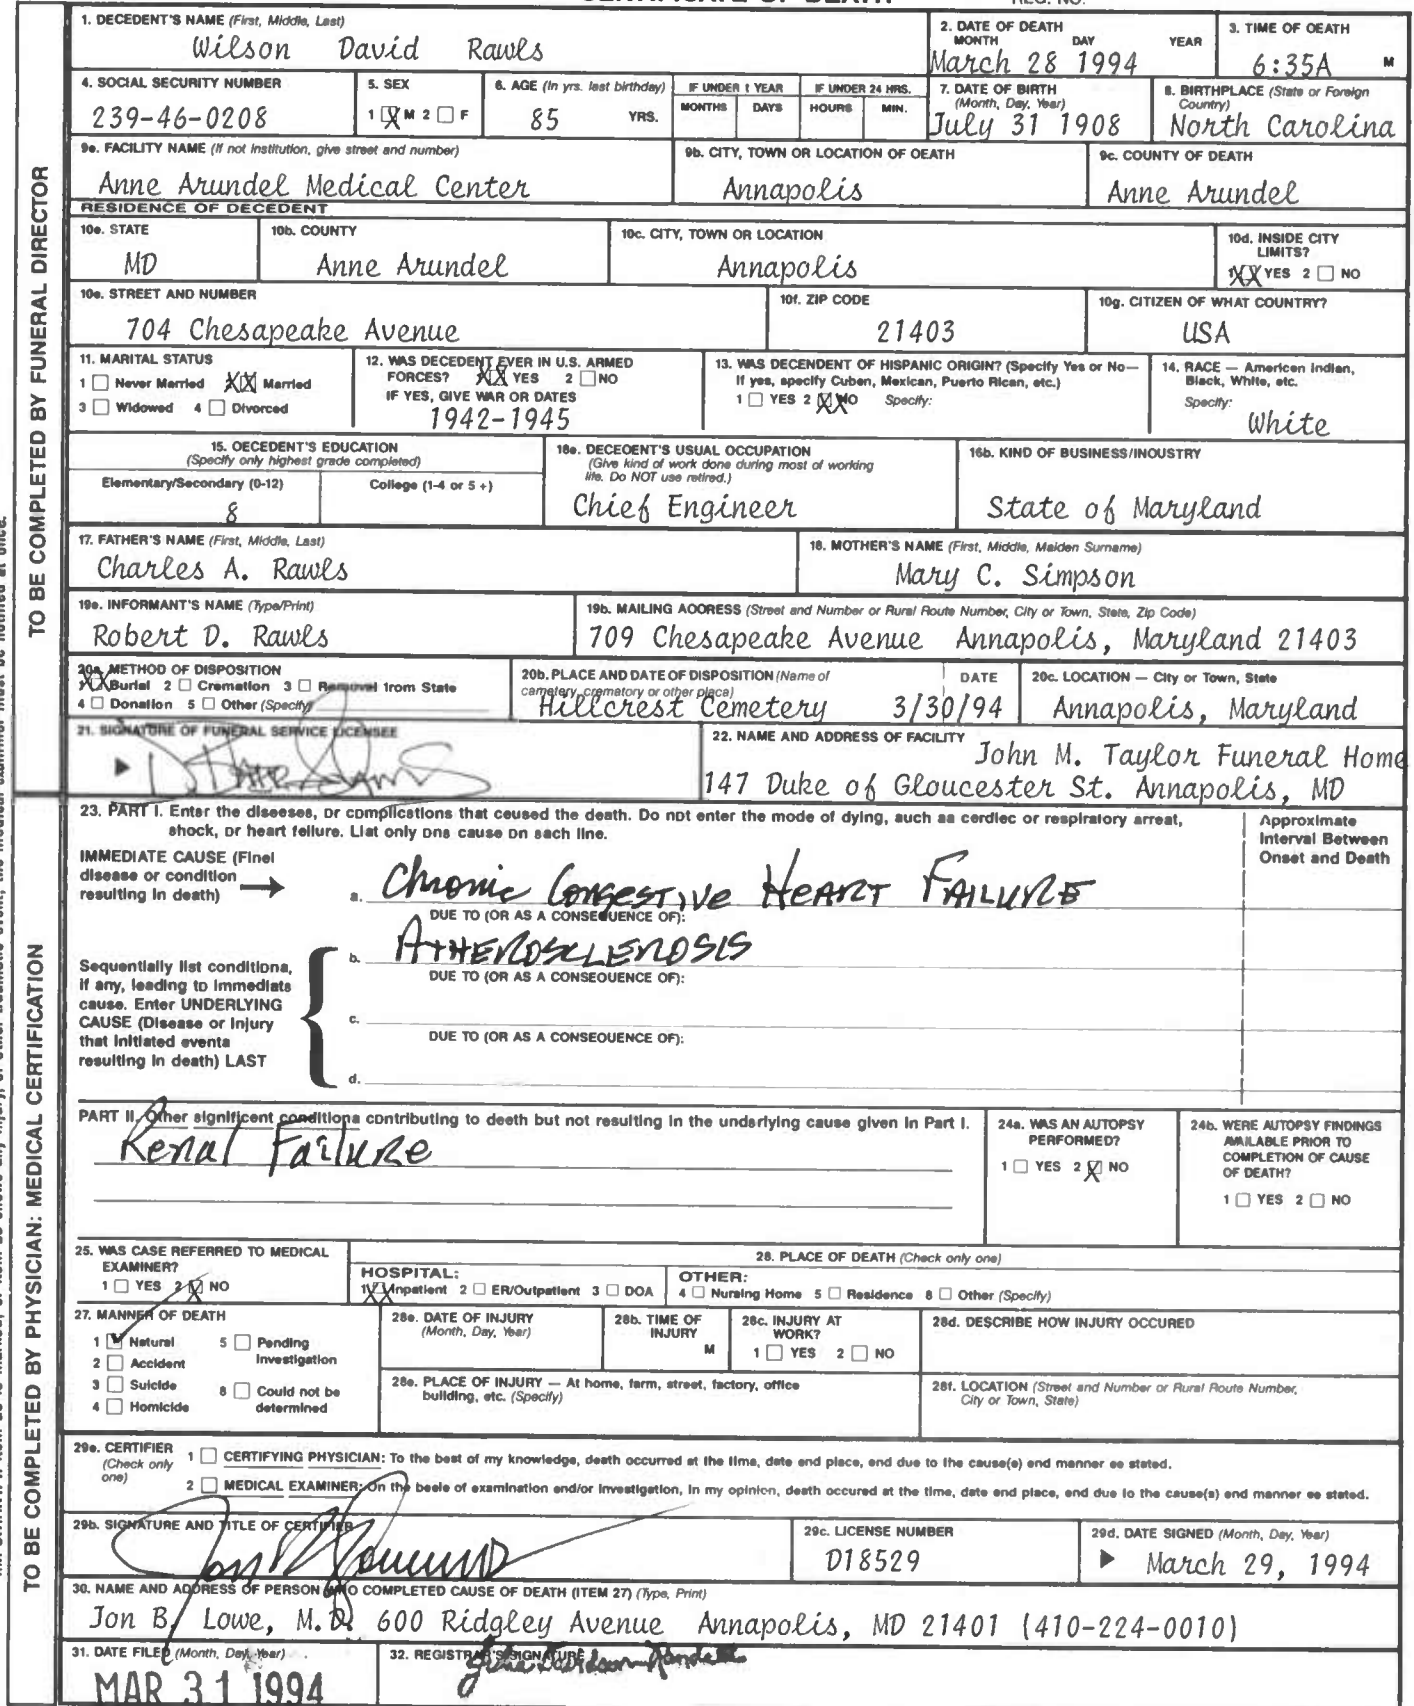 1. DECEDENT'S NAME (First, Middle, Last)
Wilson David Rawls
2. DATE OF DEATH
MONTH DAY YEAR
March 28 1994
3. TIME OF DEATH
6:35A M
4. SOCIAL SECURITY NUMBER
239-46-0208
5. SEX
1 X M 2 ☐ F
6. AGE (In yrs. last birthday)
85 YRS.
IF UNDER 1 YEAR
MONTHS DAYS
IF UNDER 24 HRS.
HOURS MIN.
7. DATE OF BIRTH
(Month, Day, Year)
July 31 1908
8. BIRTHPLACE (State or Foreign
Country)
North Carolina
9a. FACILITY NAME (If not institution, give street and number)
Anne Arundel Medical Center
9b. CITY, TOWN OR LOCATION OF DEATH
Annapolis
9c. COUNTY OF DEATH
Anne Arundel
RESIDENCE OF DECEDENT
10a. STATE
MD
10b. COUNTY
Anne Arundel
10c. CITY, TOWN OR LOCATION
Annapolis
10d. INSIDE CITY
LIMITS?
XX YES 2 ☐ NO
10e. STREET AND NUMBER
704 Chesapeake Avenue
10f. ZIP CODE
21403
10g. CITIZEN OF WHAT COUNTRY?
USA
11. MARITAL STATUS
1 ☐ Never Married XX Married
3 ☐ Widowed 4 ☐ Divorced
12. WAS DECEDENT EVER IN U.S. ARMED
FORCES? XX YES 2 ☐ NO
IF YES, GIVE WAR OR DATES
1942-1945
13. WAS DECENDENT OF HISPANIC ORIGIN? (Specify Yes or No—
If yes, specify Cuban, Mexican, Puerto Rican, etc.)
1 ☐ YES 2 XX NO Specify:
14. RACE — American Indian,
Black, White, etc.
Specify:
White
15. DECEDENT'S EDUCATION
(Specify only highest grade completed)
Elementary/Secondary (0-12) College (1-4 or 5 +)
8
16a. DECEDENT'S USUAL OCCUPATION
(Give kind of work done during most of working
life. Do NOT use retired.)
Chief Engineer
16b. KIND OF BUSINESS/INDUSTRY
State of Maryland
17. FATHER'S NAME (First, Middle, Last)
Charles A. Rawls
18. MOTHER'S NAME (First, Middle, Maiden Surname)
Mary C. Simpson
19a. INFORMANT'S NAME (Type/Print)
Robert D. Rawls
19b. MAILING ADDRESS (Street and Number or Rural Route Number, City or Town, State, Zip Code)
709 Chesapeake Avenue Annapolis, Maryland 21403
20a. METHOD OF DISPOSITION
XX Burial 2 ☐ Cremation 3 ☐ Removal from State
4 ☐ Donation 5 ☐ Other (Specify)
20b. PLACE AND DATE OF DISPOSITION (Name of
cemetery, crematory or other place) DATE
Hillcrest Cemetery 3/30/94
20c. LOCATION — City or Town, State
Annapolis, Maryland
21. SIGNATURE OF FUNERAL SERVICE LICENSEE
22. NAME AND ADDRESS OF FACILITY John M. Taylor Funeral Home
147 Duke of Gloucester St. Annapolis, MD
23. PART I. Enter the diseases, or complications that caused the death. Do not enter the mode of dying, such as cardiac or respiratory arrest,
shock, or heart failure. List only one cause on each line.
Approximate
Interval Between
Onset and Death
IMMEDIATE CAUSE (Final
disease or condition
resulting in death) →
a. Chronic Congestive Heart Failure
DUE TO (OR AS A CONSEQUENCE OF):
b. Atherosclerosis
DUE TO (OR AS A CONSEQUENCE OF):
c.
DUE TO (OR AS A CONSEQUENCE OF):
d.
Sequentially list conditions,
if any, leading to immediate
cause. Enter UNDERLYING
CAUSE (Disease or injury
that initiated events
resulting in death) LAST
PART II. Other significant conditions contributing to death but not resulting in the underlying cause given in Part I.
Renal Failure
24a. WAS AN AUTOPSY
PERFORMED?
1 ☐ YES 2 X NO
24b. WERE AUTOPSY FINDINGS
AVAILABLE PRIOR TO
COMPLETION OF CAUSE
OF DEATH?
1 ☐ YES 2 ☐ NO
25. WAS CASE REFERRED TO MEDICAL
EXAMINER?
1 ☐ YES 2 X NO
26. PLACE OF DEATH (Check only one)
HOSPITAL:
1 XX Inpatient 2 ☐ ER/Outpatient 3 ☐ DOA
OTHER:
4 ☐ Nursing Home 5 ☐ Residence 6 ☐ Other (Specify)
27. MANNER OF DEATH
1 ✓ Natural 5 ☐ Pending
Investigation
2 ☐ Accident
3 ☐ Suicide 6 ☐ Could not be
4 ☐ Homicide determined
28a. DATE OF INJURY
(Month, Day, Year)
28b. TIME OF
INJURY
M
28c. INJURY AT
WORK?
1 ☐ YES 2 ☐ NO
28d. DESCRIBE HOW INJURY OCCURED
28e. PLACE OF INJURY — At home, farm, street, factory, office
building, etc. (Specify)
28f. LOCATION (Street and Number or Rural Route Number,
City or Town, State)
29a. CERTIFIER
(Check only
one)
1 ☐ CERTIFYING PHYSICIAN: To the best of my knowledge, death occurred at the time, date and place, and due to the cause(s) and manner as stated.
2 ☐ MEDICAL EXAMINER: On the basis of examination and/or investigation, in my opinion, death occured at the time, date and place, and due to the cause(s) and manner as stated.
29b. SIGNATURE AND TITLE OF CERTIFIER
29c. LICENSE NUMBER
D18529
29d. DATE SIGNED (Month, Day, Year)
March 29, 1994
30. NAME AND ADDRESS OF PERSON WHO COMPLETED CAUSE OF DEATH (ITEM 27) (Type, Print)
Jon B. Lowe, M.D. 600 Ridgley Avenue Annapolis, MD 21401 (410-224-0010)
31. DATE FILED (Month, Day, Year)
MAR 31 1994
32. REGISTRAR'S SIGNATURE
TO BE COMPLETED BY FUNERAL DIRECTOR
TO BE COMPLETED BY PHYSICIAN: MEDICAL CERTIFICATION